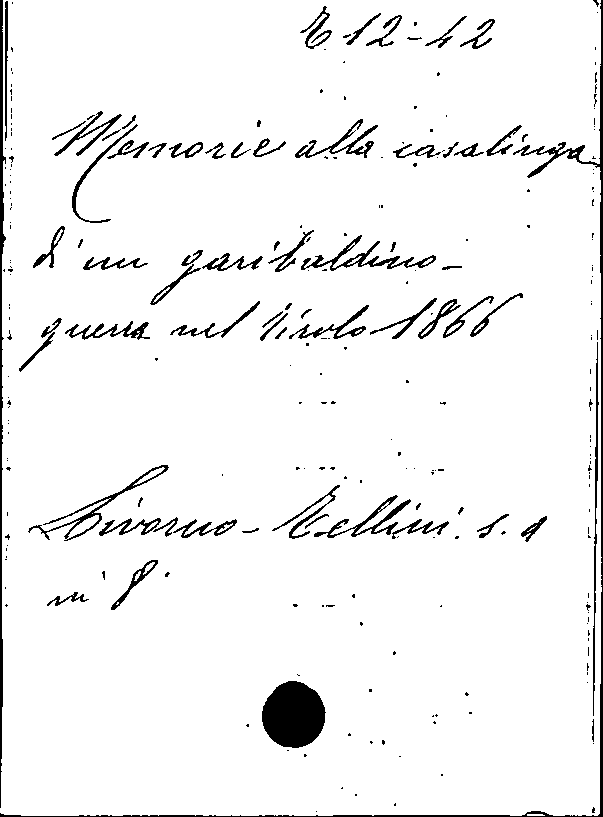 E 12-42
Memorie alla casalinga
d'un garibaldino -
guerra nel Tirolo 1866
Livorno - Zellini s. a
in 8.